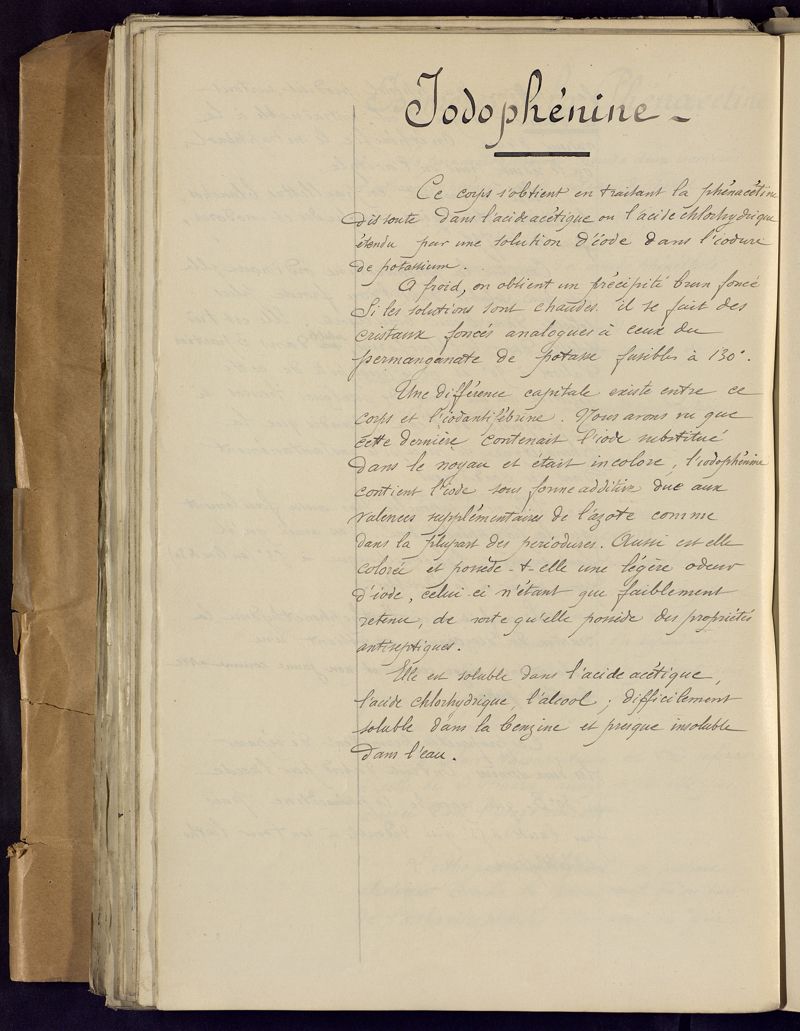 Iodophénine -
Ce corps s'obtient en traitant la phénacétine
dissoute dans l'acide acétique ou l'acide chlorhydrique
étendu par une solution d'iode dans l'iodure
de potassium.
A froid, on obtient un précipité brun foncé
Si les solutions sont chaudes il se fait des
cristaux foncés analogues à ceux du
permanganate de potasse fusibles à 130°.
Une différence capitale existe entre ce
corps et l'iodantifébrine. Nous avons vu que
cette dernière contenait l'iode substitué
dans le noyau et était incolore, l'iodophénine
contient l'iode sous forme additive due aux
valences supplémentaires de l'azote comme
dans la plupart des periodures. Aussi est elle
colorée et possède-t-elle une légère odeur
d'iode, celui ci n'étant que faiblement
retenu, de sorte qu'elle possède des propriétés
antiseptiques.
Elle est soluble dans l'acide acétique,
l'acide chlorhydrique, l'alcool ; difficilement
soluble dans la benzine et presque insoluble
dans l'eau.